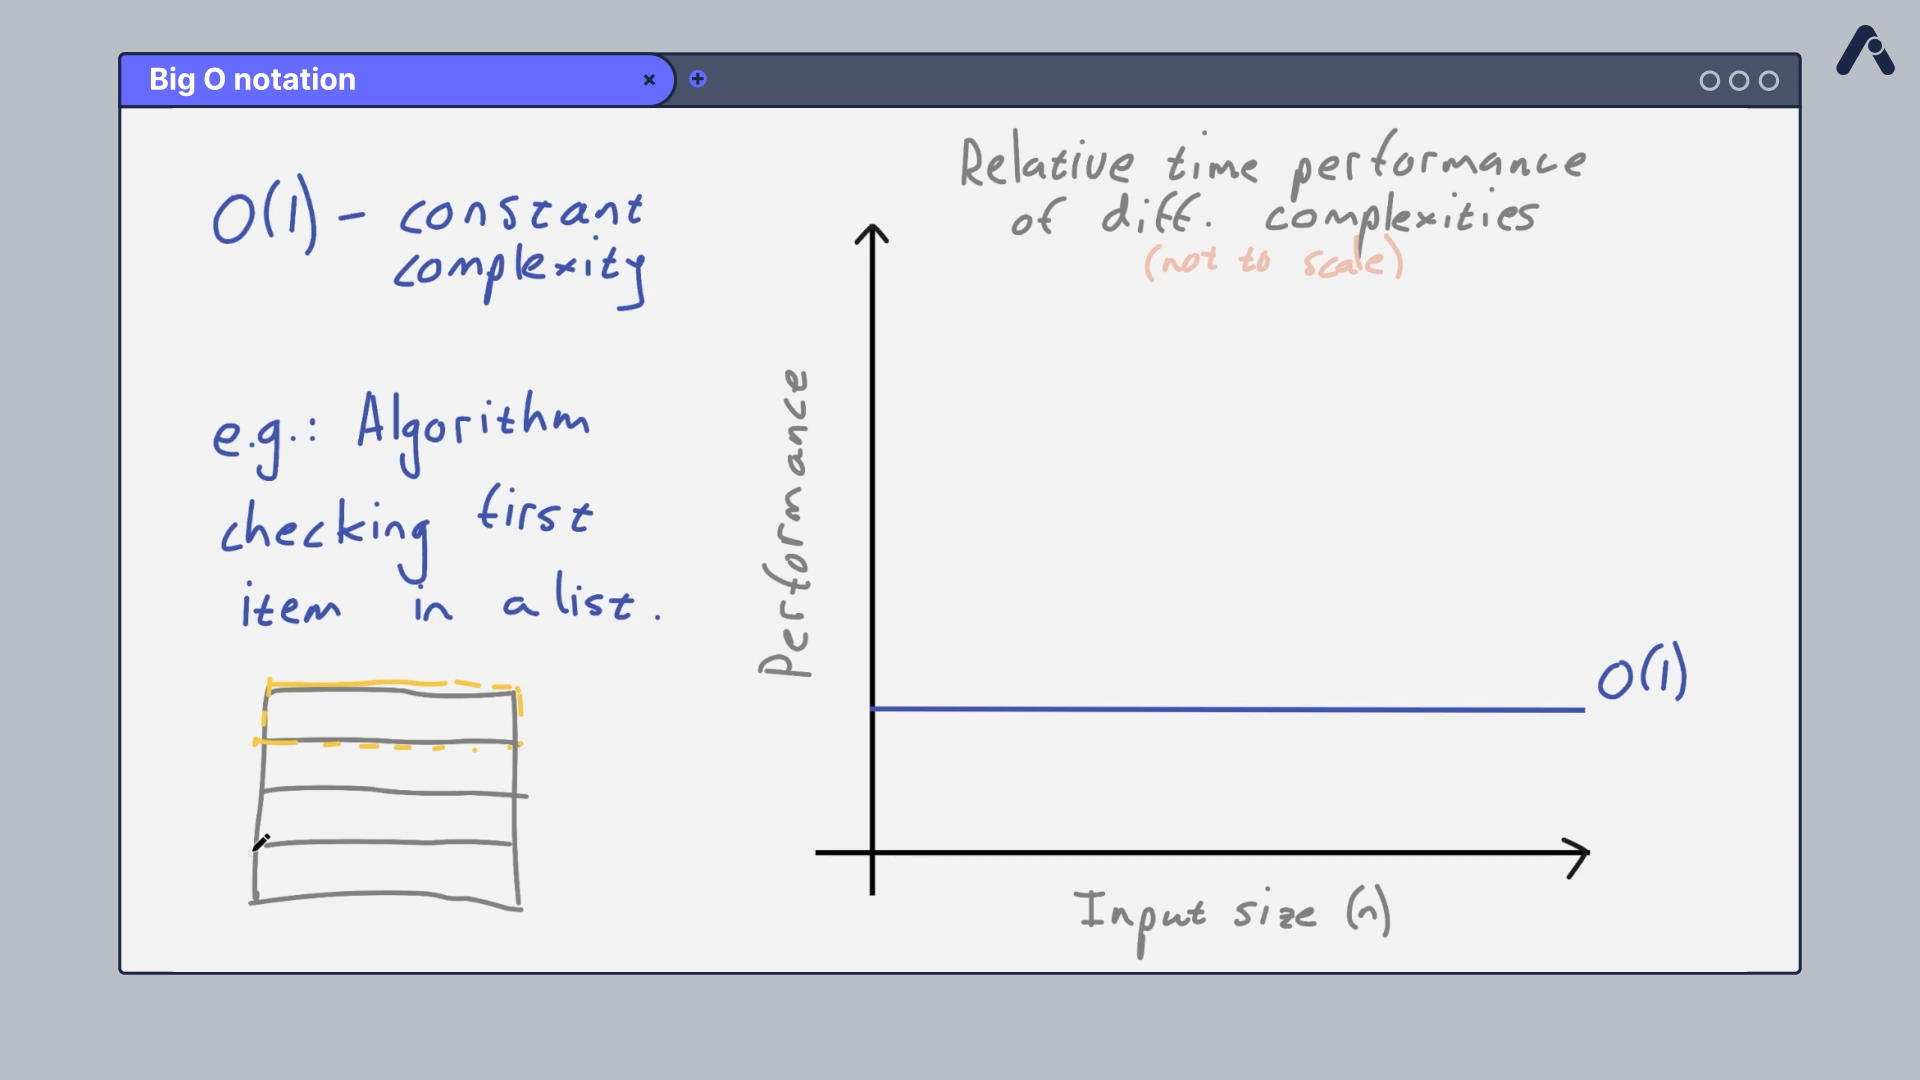 Big O notation
O(1) - constant
complexity
e.g.: Algorithm
checking first
item in a list.
Relative time performance
of diff. complexities
(not to scale)
Performance
O(1)
Input size (n)